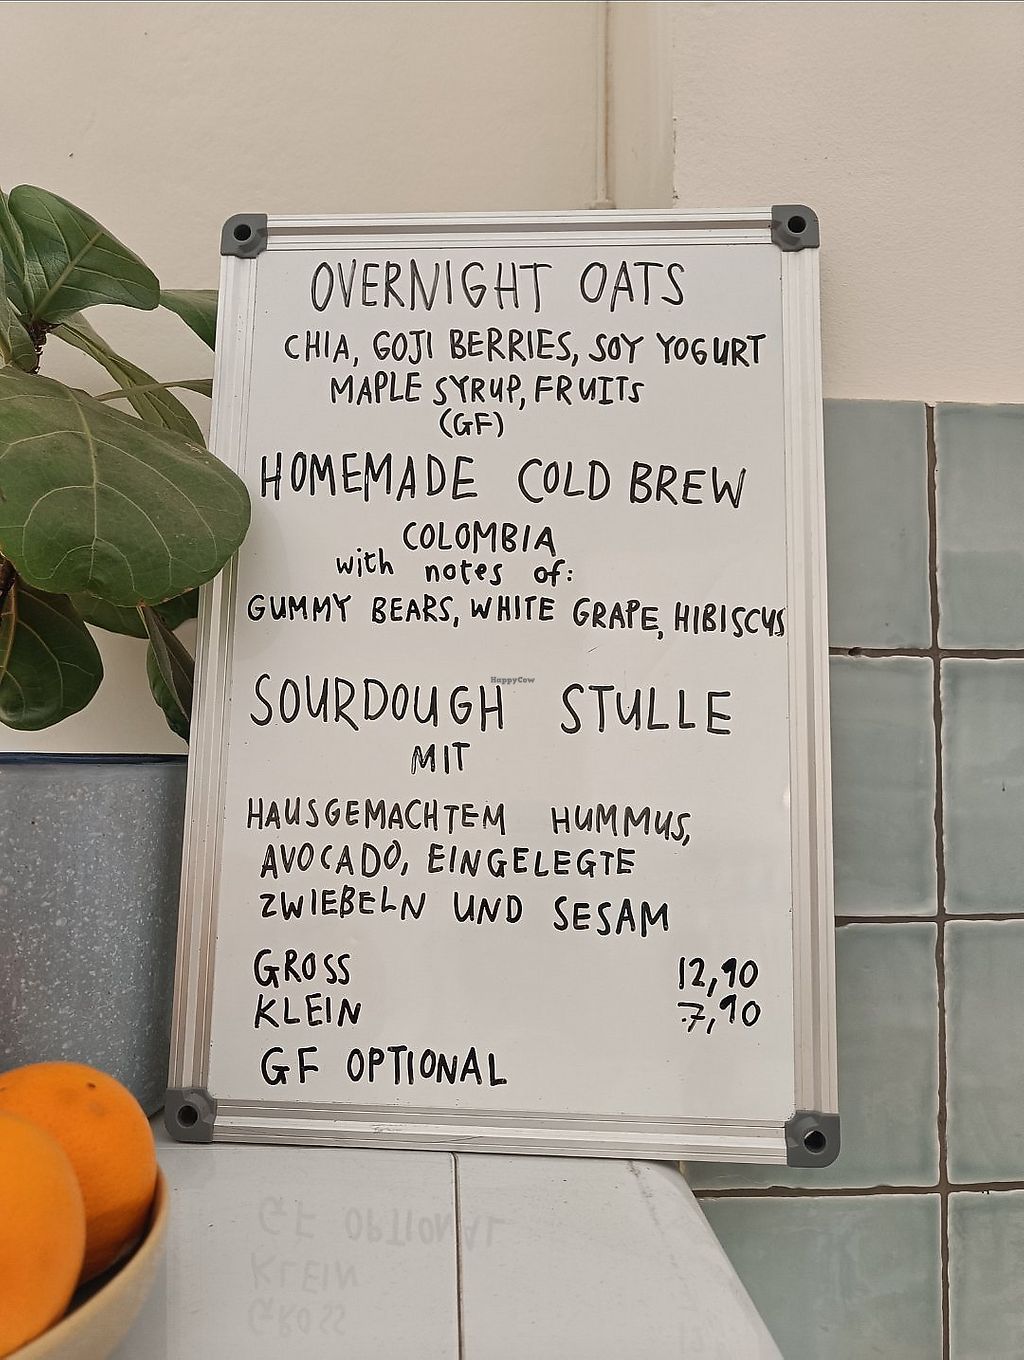 OVERNIGHT OATS
CHIA, GOJI BERRIES, SOY YOGURT
MAPLE SYRUP, FRUITS
(GF)
HOMEMADE COLD BREW
COLOMBIA
with notes of:
GUMMY BEARS, WHITE GRAPE, HIBISCUS
HappyCow
SOURDOUGH STULLE
MIT
HAUSGEMACHTEM HUMMUS,
AVOCADO, EINGELEGTE
ZWIEBELN UND SESAM
GROSS 12,90
KLEIN 7,90
GF OPTIONAL